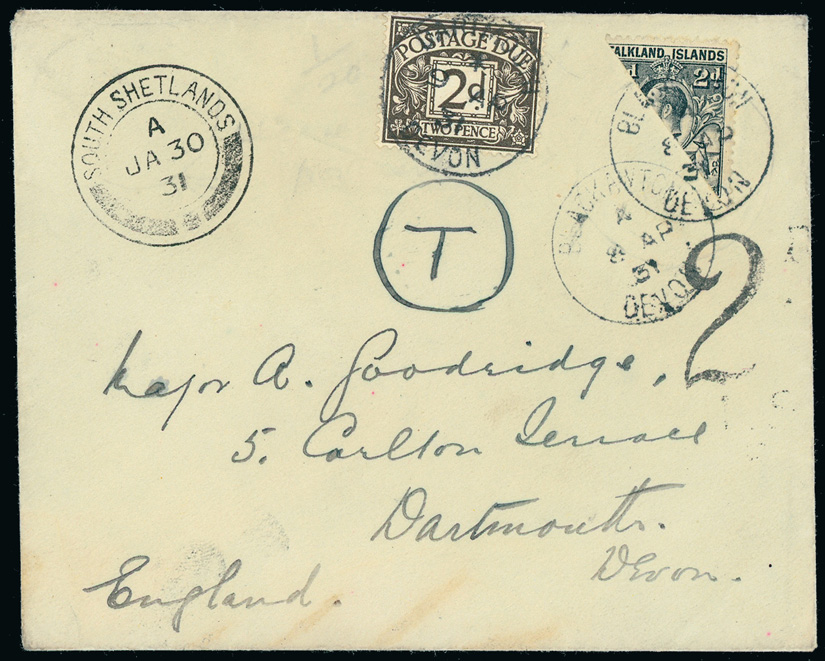 SOUTH SHETLANDS
A
JA 30
31
POSTAGE DUE
2D
TWO PENCE
DEVON
FALKLAND ISLANDS
2d
DEVON
BLACKAWTON
A
8 AP
31
DEVON
T
2
Major A. Goodridge,
5. Carlton Terrace
Dartmouth.
Devon.
England.